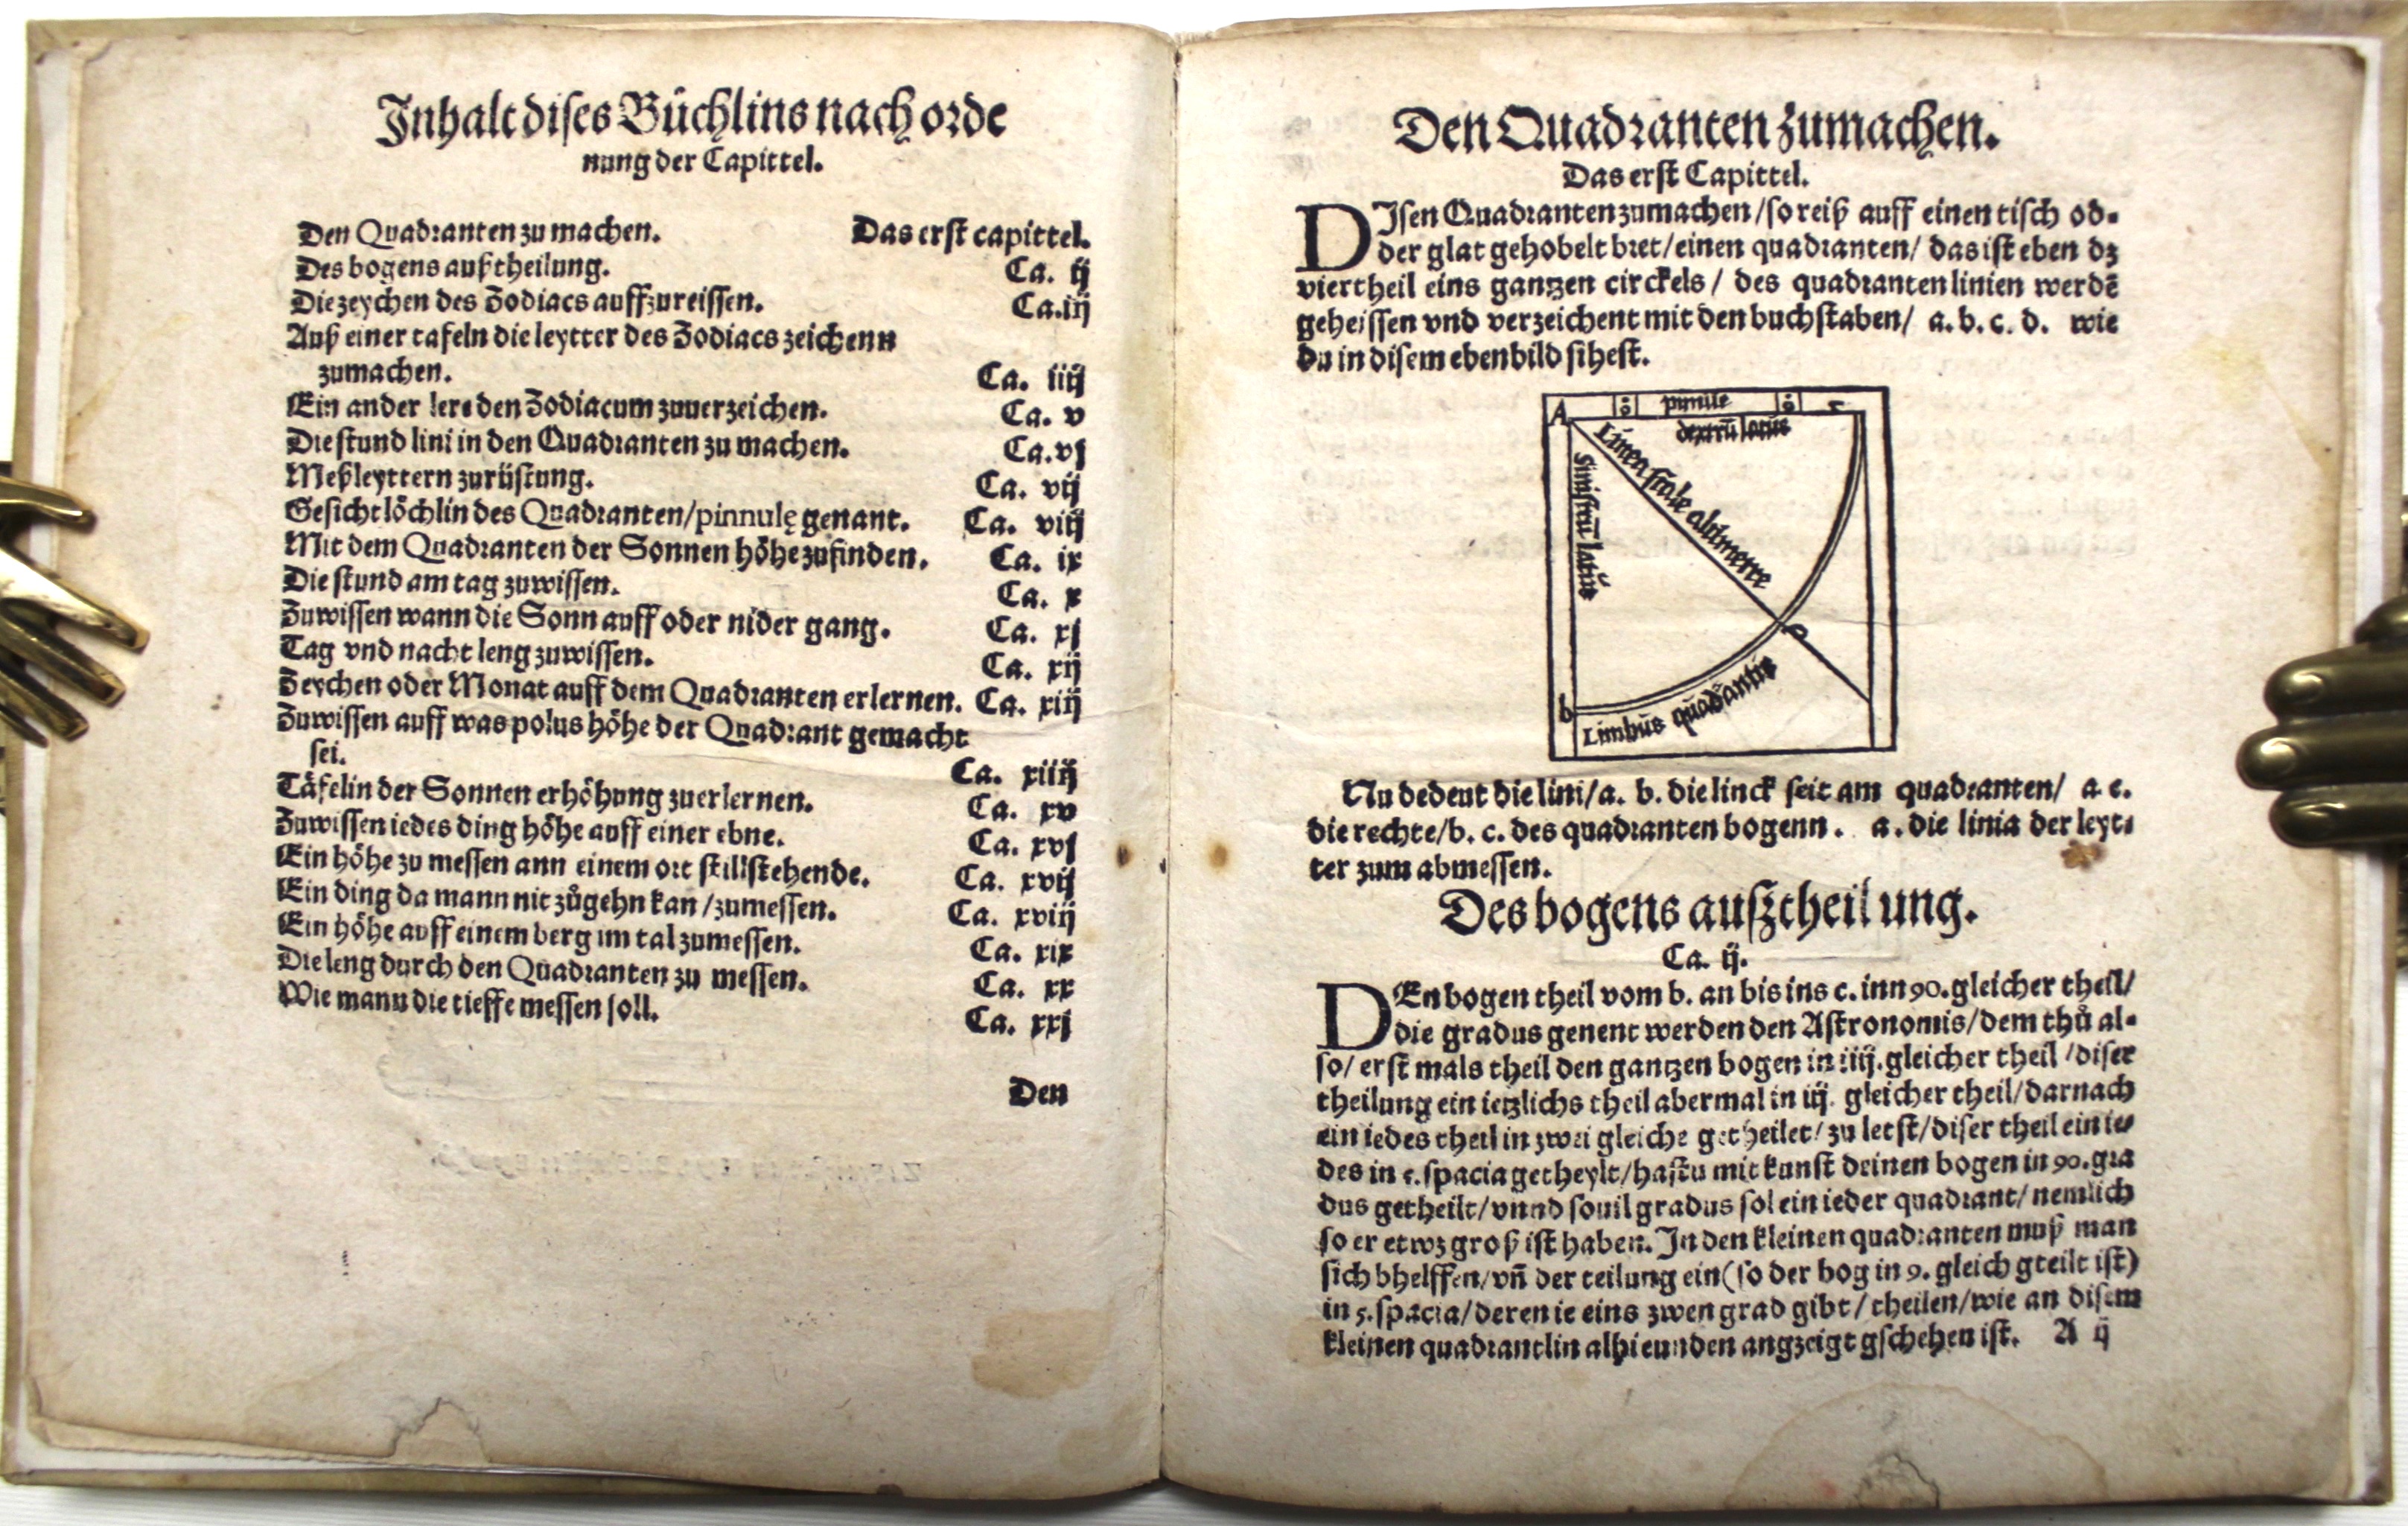 Inhalt dises Büchlins nach orde
nung der Capittel.
Den Quadranten zu machen. Das erst capittel.
Des bogens außtheilung. Ca. ij
Die zeychen des Zodiacs auffzureissen. Ca. iij
Auß einer tafeln die leytter des Zodiacs zeichenn
zumachen. Ca. iiij
Ein ander lere den Zodiacum zuuerzeichen. Ca. v
Die stund lini in den Quadranten zu machen. Ca. vj
Meßleyttern zurüstung. Ca. vij
Gesicht löchlin des Quadranten/pinnulę genant. Ca. viij
Mit dem Quadranten der Sonnen höhe zufinden. Ca. ix
Die stund am tag zuwissen. Ca. x
Zuwissen wann die Sonn auff oder nider gang. Ca. xj
Tag vnd nacht leng zuwissen. Ca. xij
Zeychen oder Monat auff dem Quadranten erlernen. Ca. xiij
Zuwissen auff was polus höhe der Quadrant gemacht
sei. Ca. xiiij
Täfelin der Sonnen erhöhung zuerlernen. Ca. xv
Zuwissen iedes ding höhe auff einer ebne. Ca. xvj
Ein höhe zu messen ann einem ort stillstehende. Ca. xvij
Ein ding da mann nit zůgehn kan/zumessen. Ca. xviij
Ein höhe auff einem berg im tal zumessen. Ca. xix
Die leng durch den Quadranten zu messen. Ca. xx
Wie mann die tieffe messen soll. Ca. xxj
Den
Den Quadranten zumachen.
Das erst Capittel.
DIsen Quadranten zumachen/so reiß auff einen tisch od-
der glat gehobelt bret/einen quadranten/ das ist eben dz
viertheil eins gantzen circkels/ des quadranten linien werdē
geheissen vnd verzeichent mit den buchstaben/ a. b. c. d. wie
du in disem ebenbild sihest.
A pinnule c
dextrū latus
Linea scale altimetre
sinistrū latus
b Limbus quadrantis
Nu dedeut die lini/a. b. die linck seit am quadranten/ a c.
die rechte/b. c. des quadranten bogenn. a. die linia der leyt-
ter zum abmessen.
Des bogens auſztheilung.
Ca. ij.
DEn bogen theil vom b. an bis ins c. inn 90. gleicher theil/
die gradus genent werden den Astronomis/dem thů al-
so/ erst mals theil den gantzen bogen in iij. gleicher theil /diser
theilung ein ietzlichs theil abermal in iij. gleicher theil/darnach
ein iedes theil in zwei gleiche getheilet/ zu letst/diser theil ein ie-
des in 5. spacia getheylt/hastu mit kunst deinen bogen in 90. gra
dus getheilt/vnnd souil gradus sol ein ieder quadrant/ nemlich
so er etwz groß ist haben. In den kleinen quadranten muß man
sich bhelffen/vñ der teilung ein (so der bog in 9. gleich gteilt ist)
in 5. spacia/deren ie eins zwen grad gibt/ theilen/wie an disem
kleinen quadrantlin alhie unden angzeigt gschehen ist. A ij